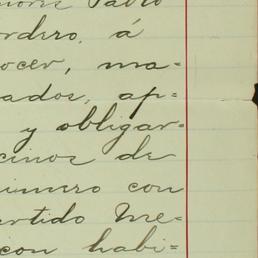 Pablo
rdero, á
ocer, ma=
ados, ap=
y obligar=
cinos de
úmero con
artido Me=
con habi=